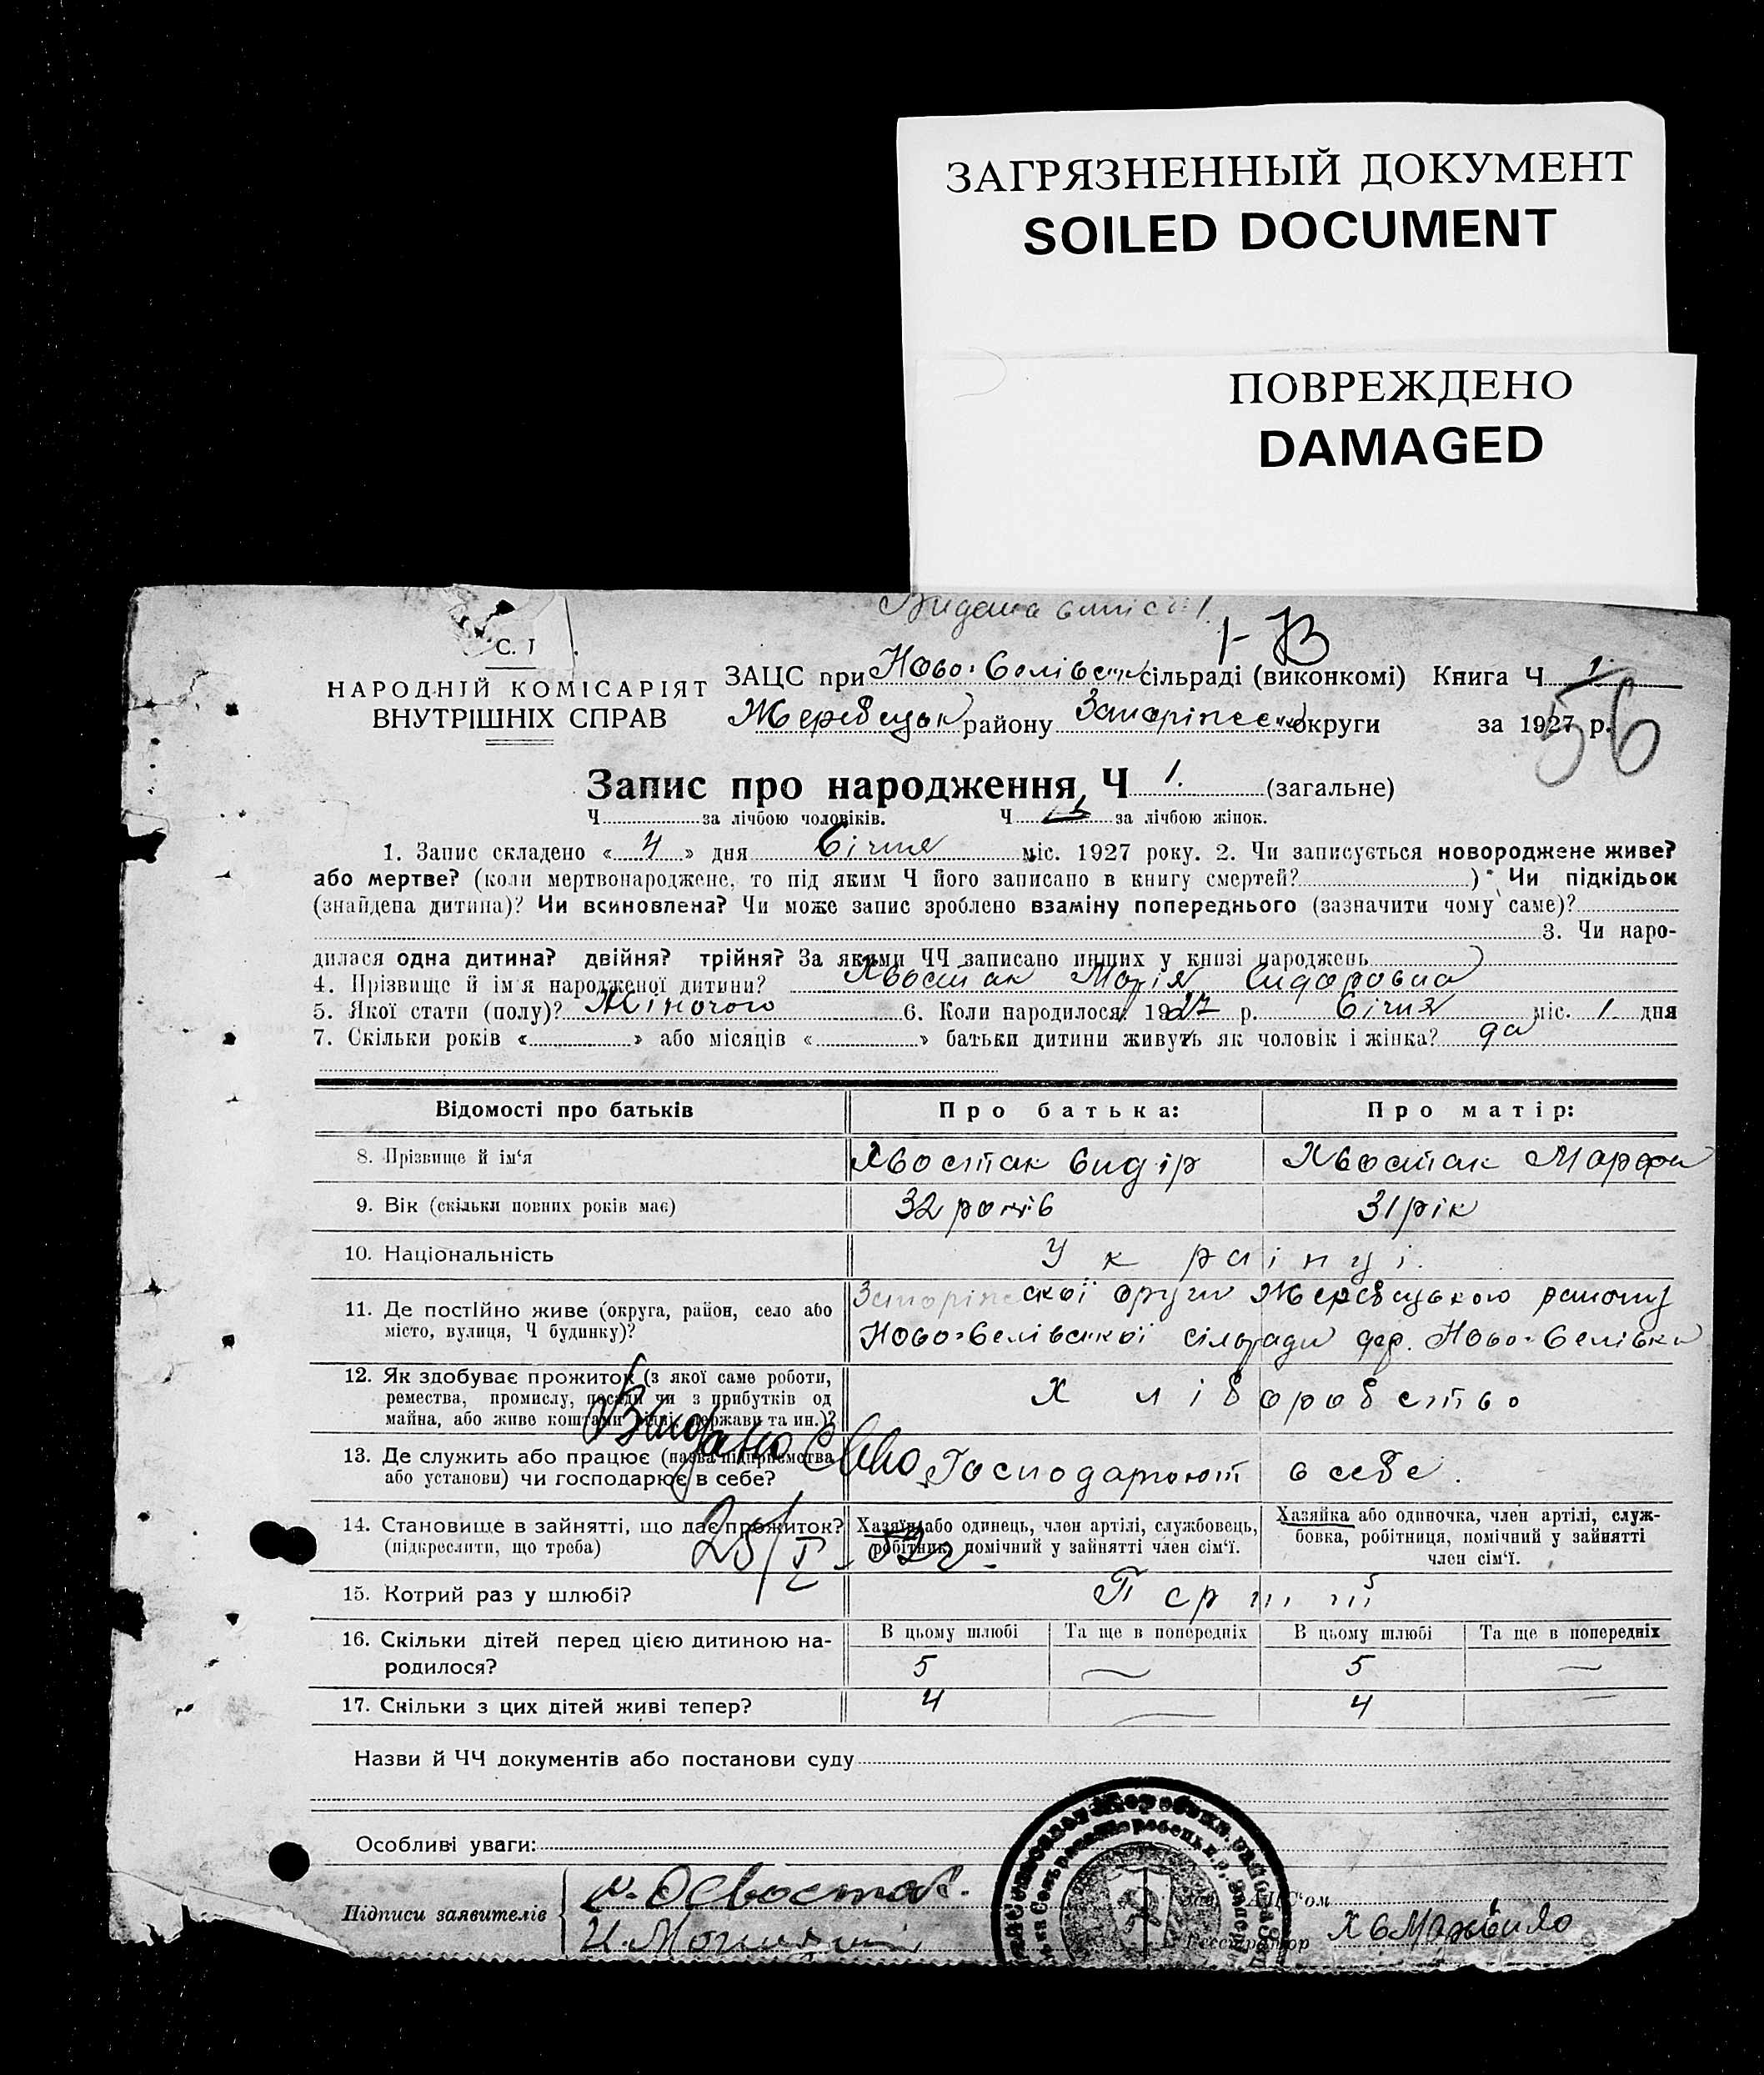 ЗАГРЯЗНЕННЫЙ ДОКУМЕНТ
SOILED DOCUMENT
ПОВРЕЖДЕНО
DAMAGED
Видана
С. І
НАРОДНІЙ КОМІСАРІЯТ
ВНУТРІШНІХ СПРАВ
ЗАЦС при Ново-Селівськ сільраді (виконкомі) Книга Ч 1.
Жеребецьк району Запоріжськ округи за 1927 р.
56
Запис про народження, Ч 1. (загальне)
Ч за лічбою чоловіків. Ч за лічбою жінок.
1. Запис складено « 4 » дня Січня міс. 1927 року. 2. Чи записується новороджене живе?
або мертве? (коли мертвонароджене, то під яким Ч його записано в книгу смертей? ) Чи підкідьок
(знайдена дитина)? Чи всиновлена? Чи може запис зроблено взаміну попереднього (зазначити чому саме)?
3. Чи наро-
дилася одна дитина? двійня? трійня? За якими ЧЧ записано инших у книзі народжень
4. Прізвище й імя народженої дитини? Хвостак Марія Сидоровна
5. Якої стати (полу)? Жіночого 6. Коли народилося 1927 р. Січня міс. 1 дня
7. Скільки років « » або місяців « » батьки дитини живуть як чоловік і жінка? да
Відомості про батьків Про батька: Про матір:
8. Прізвище й ім'я Хвостак Сидір Хвостак Марфа
9. Вік (скільки повних років має) 32 років 31 рік
10. Національність Українці.
11. Де постійно живе (округа, район, село або місто, вулиця, Ч будинку)? Запоріжської округи Жеребецького району
Ново-Селівської сільради дер. Ново-Селівки
12. Як здобуває прожиток (з якої саме роботи,
ремества, промислу, посади чи з прибутків од
майна, або живе коштами рідні, держави та ин.)? Хліборобство
Видано
13. Де служить або працює (назва підприємства
або установи) чи господарює в себе? Господарюют в себе.
14. Становище в зайнятті, що дає прожиток?
(підкреслити, що треба)
Хазяїн або одинець, член артілі, службовець,
робітник, помічний у зайнятті член сім'ї.
Хазяйка або одиночка, член артілі, служ-
бовка, робітниця, помічний у зайнятті
член сім'ї.
25/I
15. Котрий раз у шлюбі? Перший
16. Скільки дітей перед цією дитиною на-
родилося?
В цьому шлюбі Та ще в попередніх В цьому шлюбі Та ще в попередніх
5 — 5 —
17. Скільки з цих дітей живі тепер? 4 — 4 —
Назви й ЧЧ документів або постанови суду
Особливі уваги:
Підписи заявителів
Реєстратор